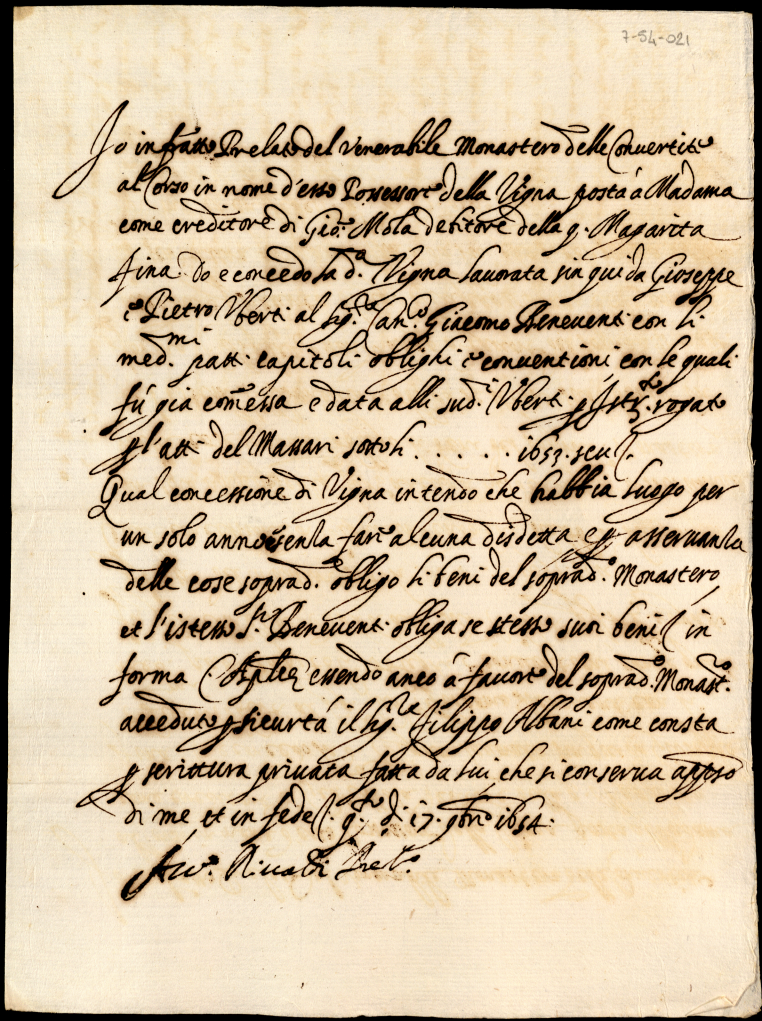 7-54-021
Io infratto Prelato del Venerabile Monastero delle Convertite
al Corso in nome d'esso Possessore della Vigna posta á Madama
come creditore di Gio: Mola debitore della q. Magarita
fina do e concedo la d.a Vigna lavorata sin qui da Gioseppe
e Pietro Uberti al Sig.re Can.co Giacomo Beneventi con li
med.mi patti capitoli oblighi e conventioni con le quali
fú gia comessa e data alli sud.i Uberti p Istr.to rogato
p l'atti del Massari sotto li . . . . . 1653. seu
Qual concessione di Vigna intendo che habbia luogo per
un solo anno senza fare alcuna disdetta e p osservanza
delle cose soprad.e obligo li beni del soprad.o Monastero,
et l'istesso S.re Beneventi obliga se stesso suoi beni in
forma essendo anco á favore del soprad.o Monast.o
acceduto p sicurtá il Sig.re Filippo Albani come consta
p scrittura privata fatta da lui che si conserva appso
di me et in fede q.to dì 17. 9bre 1654.
Rivaldi Prel.o